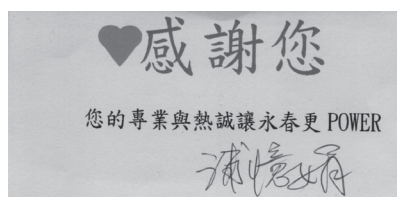 感謝您
您的專業與熱誠讓永春更 POWER
浦憶娟